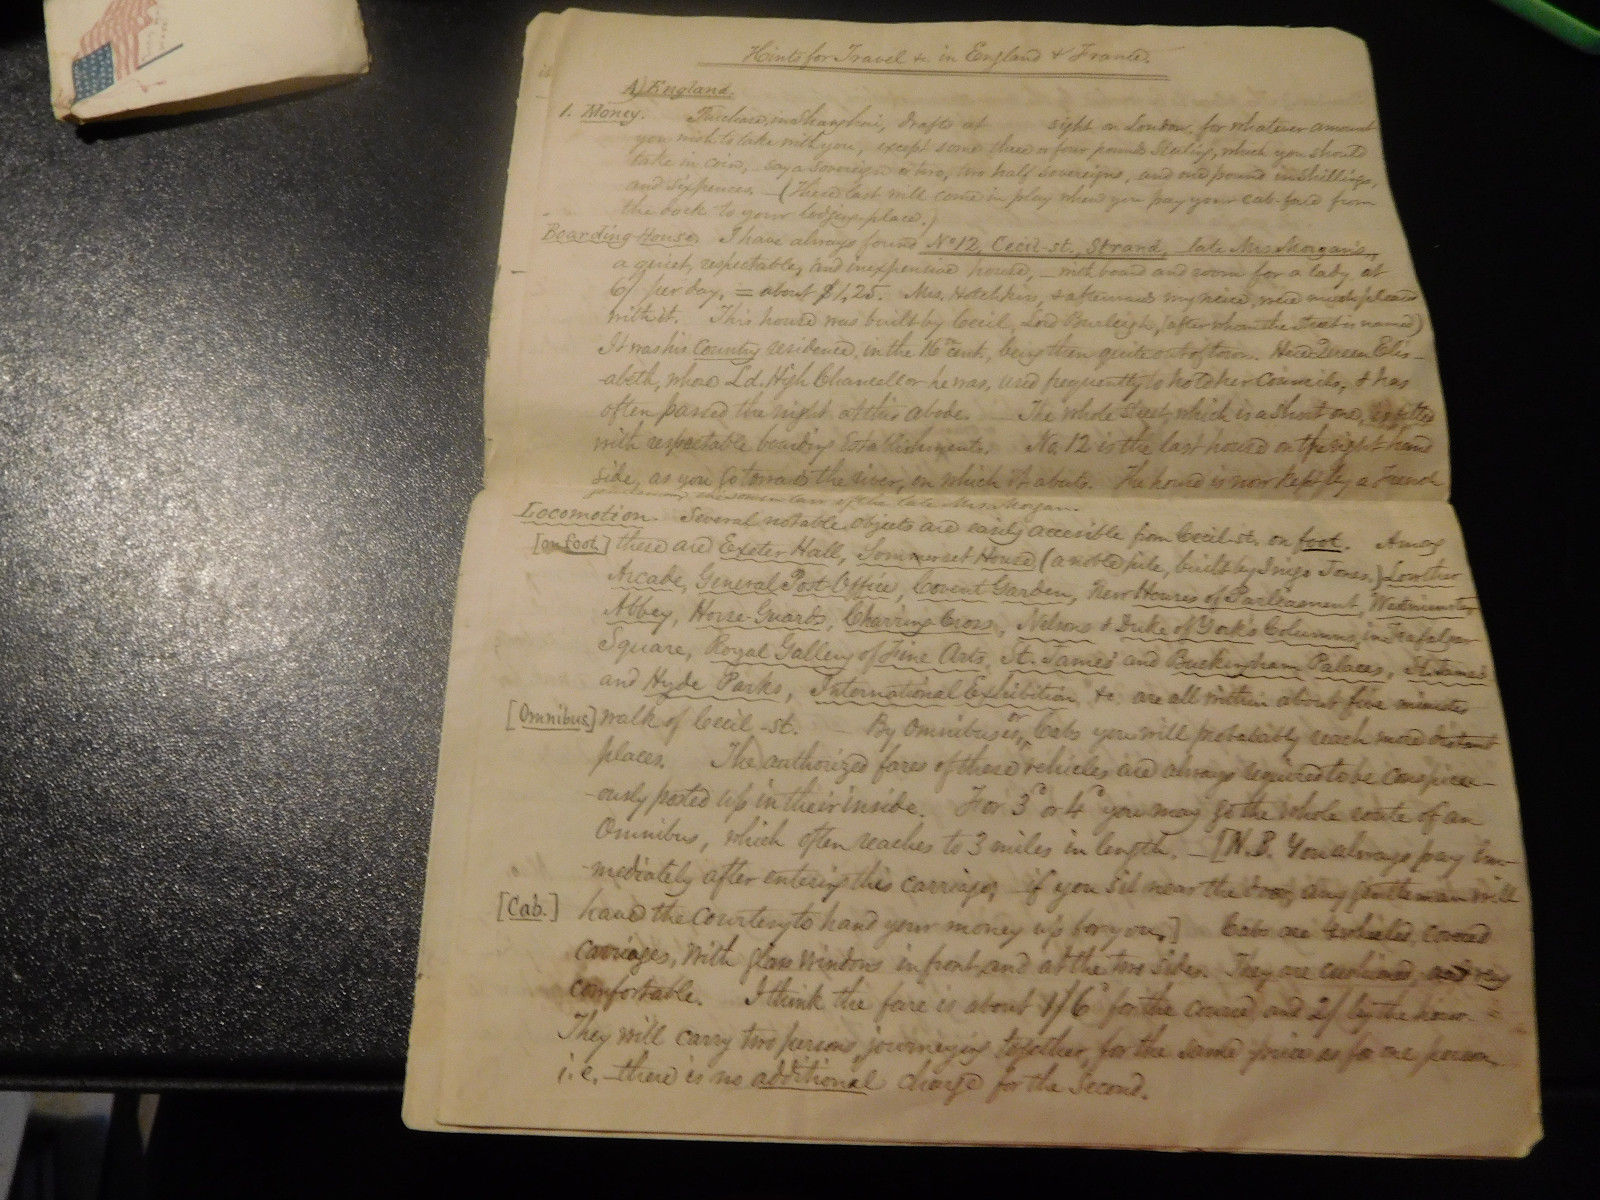 Hints for Travel &c. in England & France.
A) England.
1. Money. Purchase, in Shanghai, drafts at sight on London, for whatever amount
you wish to take with you, except some three or four pounds Sterling, which you should
take in coin, say a Sovereign or two, two half sovereigns, and one pound in shillings,
and sixpences. — (These last will come in play when you pay your cab-fare from
the dock to your lodging-place.)
Boarding-House. I have always found No 12, Cecil-st, Strand, late Mrs Morgan's,
a quiet, respectable, and inexpensive house, — with board and room for a lady at
6/ per day, = about $1,25. Mrs. Hotchkiss, & afterwards my niece, were much pleased
with it. This house was built by Cecil, Lord Burleigh, (after whom the street is named)
It was his Country residence, in the 16th cent, being then quite out of town. Here Queen Elis-
-abeth, whose Ld. High Chancellor he was, used frequently to hold her Councils, & has
often passed the night at this abode. — The whole street, which is a short one, is filled
with respectable boarding establishments. No. 12 is the last house on the right hand
side, as you go towards the river, on which it abuts. The house is now kept by a French
gentleman, the son in law of the late Mrs Morgan.
Locomotion. Several notable objects are easily accesible from Cecil st. on foot. Among
[on foot] these are Exeter Hall, Sommerset House (a noble pile, built by Inigo Jones,) Lowther
Arcade, General Post Office, Covent Garden, New Houses of Parliament, Westminster
Abbey, Horse Guards, Charring Cross, Nelsons & Duke of York's Columns, in Trafalgar
Square, Royal Gallery of Fine Arts, St. James' and Buckingham Palaces, St. James'
and Hyde Parks, International Exhibition, &c. are all within about five minutes
[Omnibus] walk of Cecil-st. — By Omnibuses, or Cabs you will probably reach more distant
places. The authorized fares of these vehicles are always required to be conspicu-
-ously posted up in their inside. For 3d or 4d you may go the whole route of an
Omnibus, which often reaches to 3 miles in length. — [N.B. You always pay im-
-mediately after entering this carriage; if you sit near the door, any gentleman will
[Cab.] have the courtesy to hand your money up for you.] Cabs are 4 wheeled, covered
carriages, with glass windows in front, and at the two sides. They are cushioned, and very
comfortable. I think the fare is about 1/6d for the course and 2/ by the hour.
They will carry two persons journeying together, for the same price as for one person
i.e. there is no additional charge for the second.